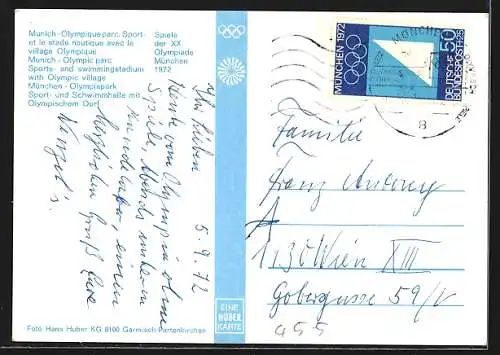 Munich - Olympique parc. Sport-
et le stade nautique avec le
village Olympique
Munich - Olympic parc
Sports- and swimmingstadium
with Olympic village
München - Olympiapark
Sport- und Schwimmhalle mit
Olympischem Dorf
Spiele
der XX
Olympiade
München
1972
5.9.72
Ihr Lieben
heute vom Olympia ohne
Spiele, Abends
einen
herzlichen Gruß Eure
EINE
HUBER
KARTE
Foto Hans Huber KG 8100 Garmisch-Partenkirchen
MÜNCHEN 1972
50+25
DEUTSCHE BUNDESPOST
MÜNCHEN
8
Familie
Franz
A
1130 Wien XIII
Gobergasse 59/V
455